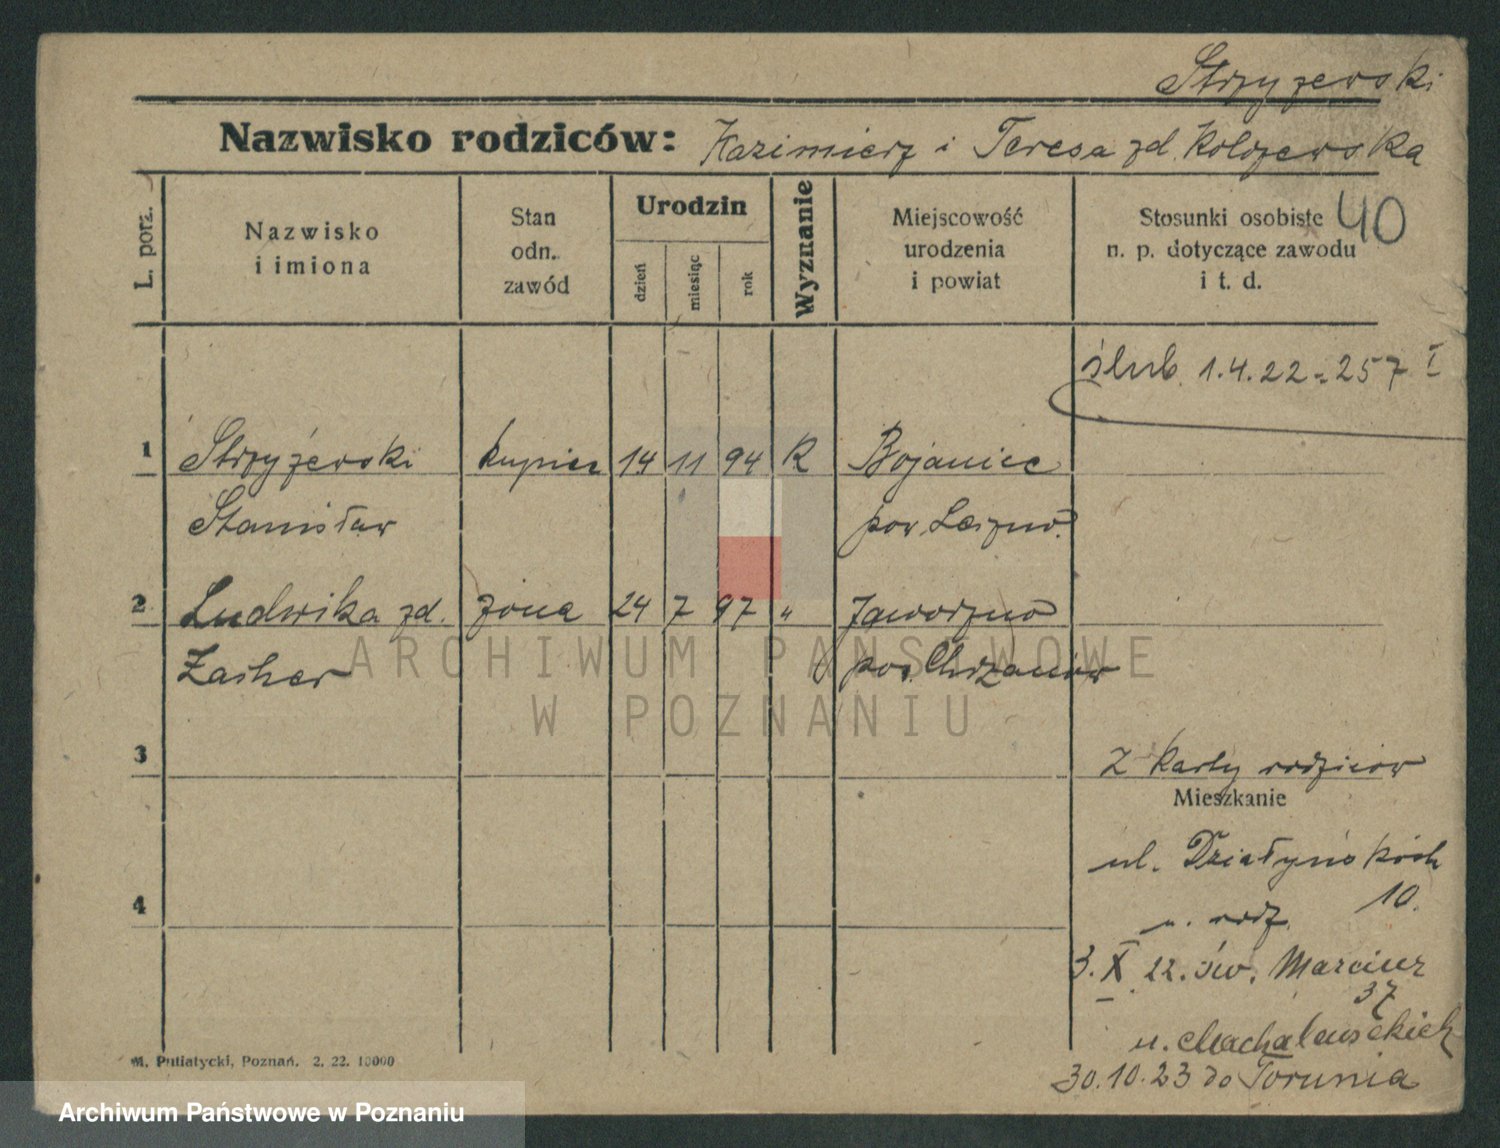 Strzyżewski
Nazwisko rodziców: Kazimierz i Teresa zd. Kolczewska
L. porz.
Nazwisko
i imiona
Stan
odn.
zawód
Urodzin
dzień
miesiąc
rok
Wyznanie
Miejscowość
urodzenia
i powiat
Stosunki osobiste
n. p. dotyczące zawodu
i t. d.
40
ślub 1.4.22 = 257 I
1 Strzyżewski kupiec 14 11 94 K Bojanice
Stanisław pow Leszno.
2 Ludwika zd. żona 24 7 97 " Jaworzno
pow. Chrzanów
3 Z karty rodziców
Mieszkanie
ul. Działyńskich
4 10.
u. rodz.
3. X 22. św. Marcin
37
u. Machalewskich
30.10.23 do Torunia
M. Putiatycki, Poznań. 2. 22. 10000
ARCHIWUM PAŃSTWOWE
W POZNANIU
Archiwum Państwowe w Poznaniu